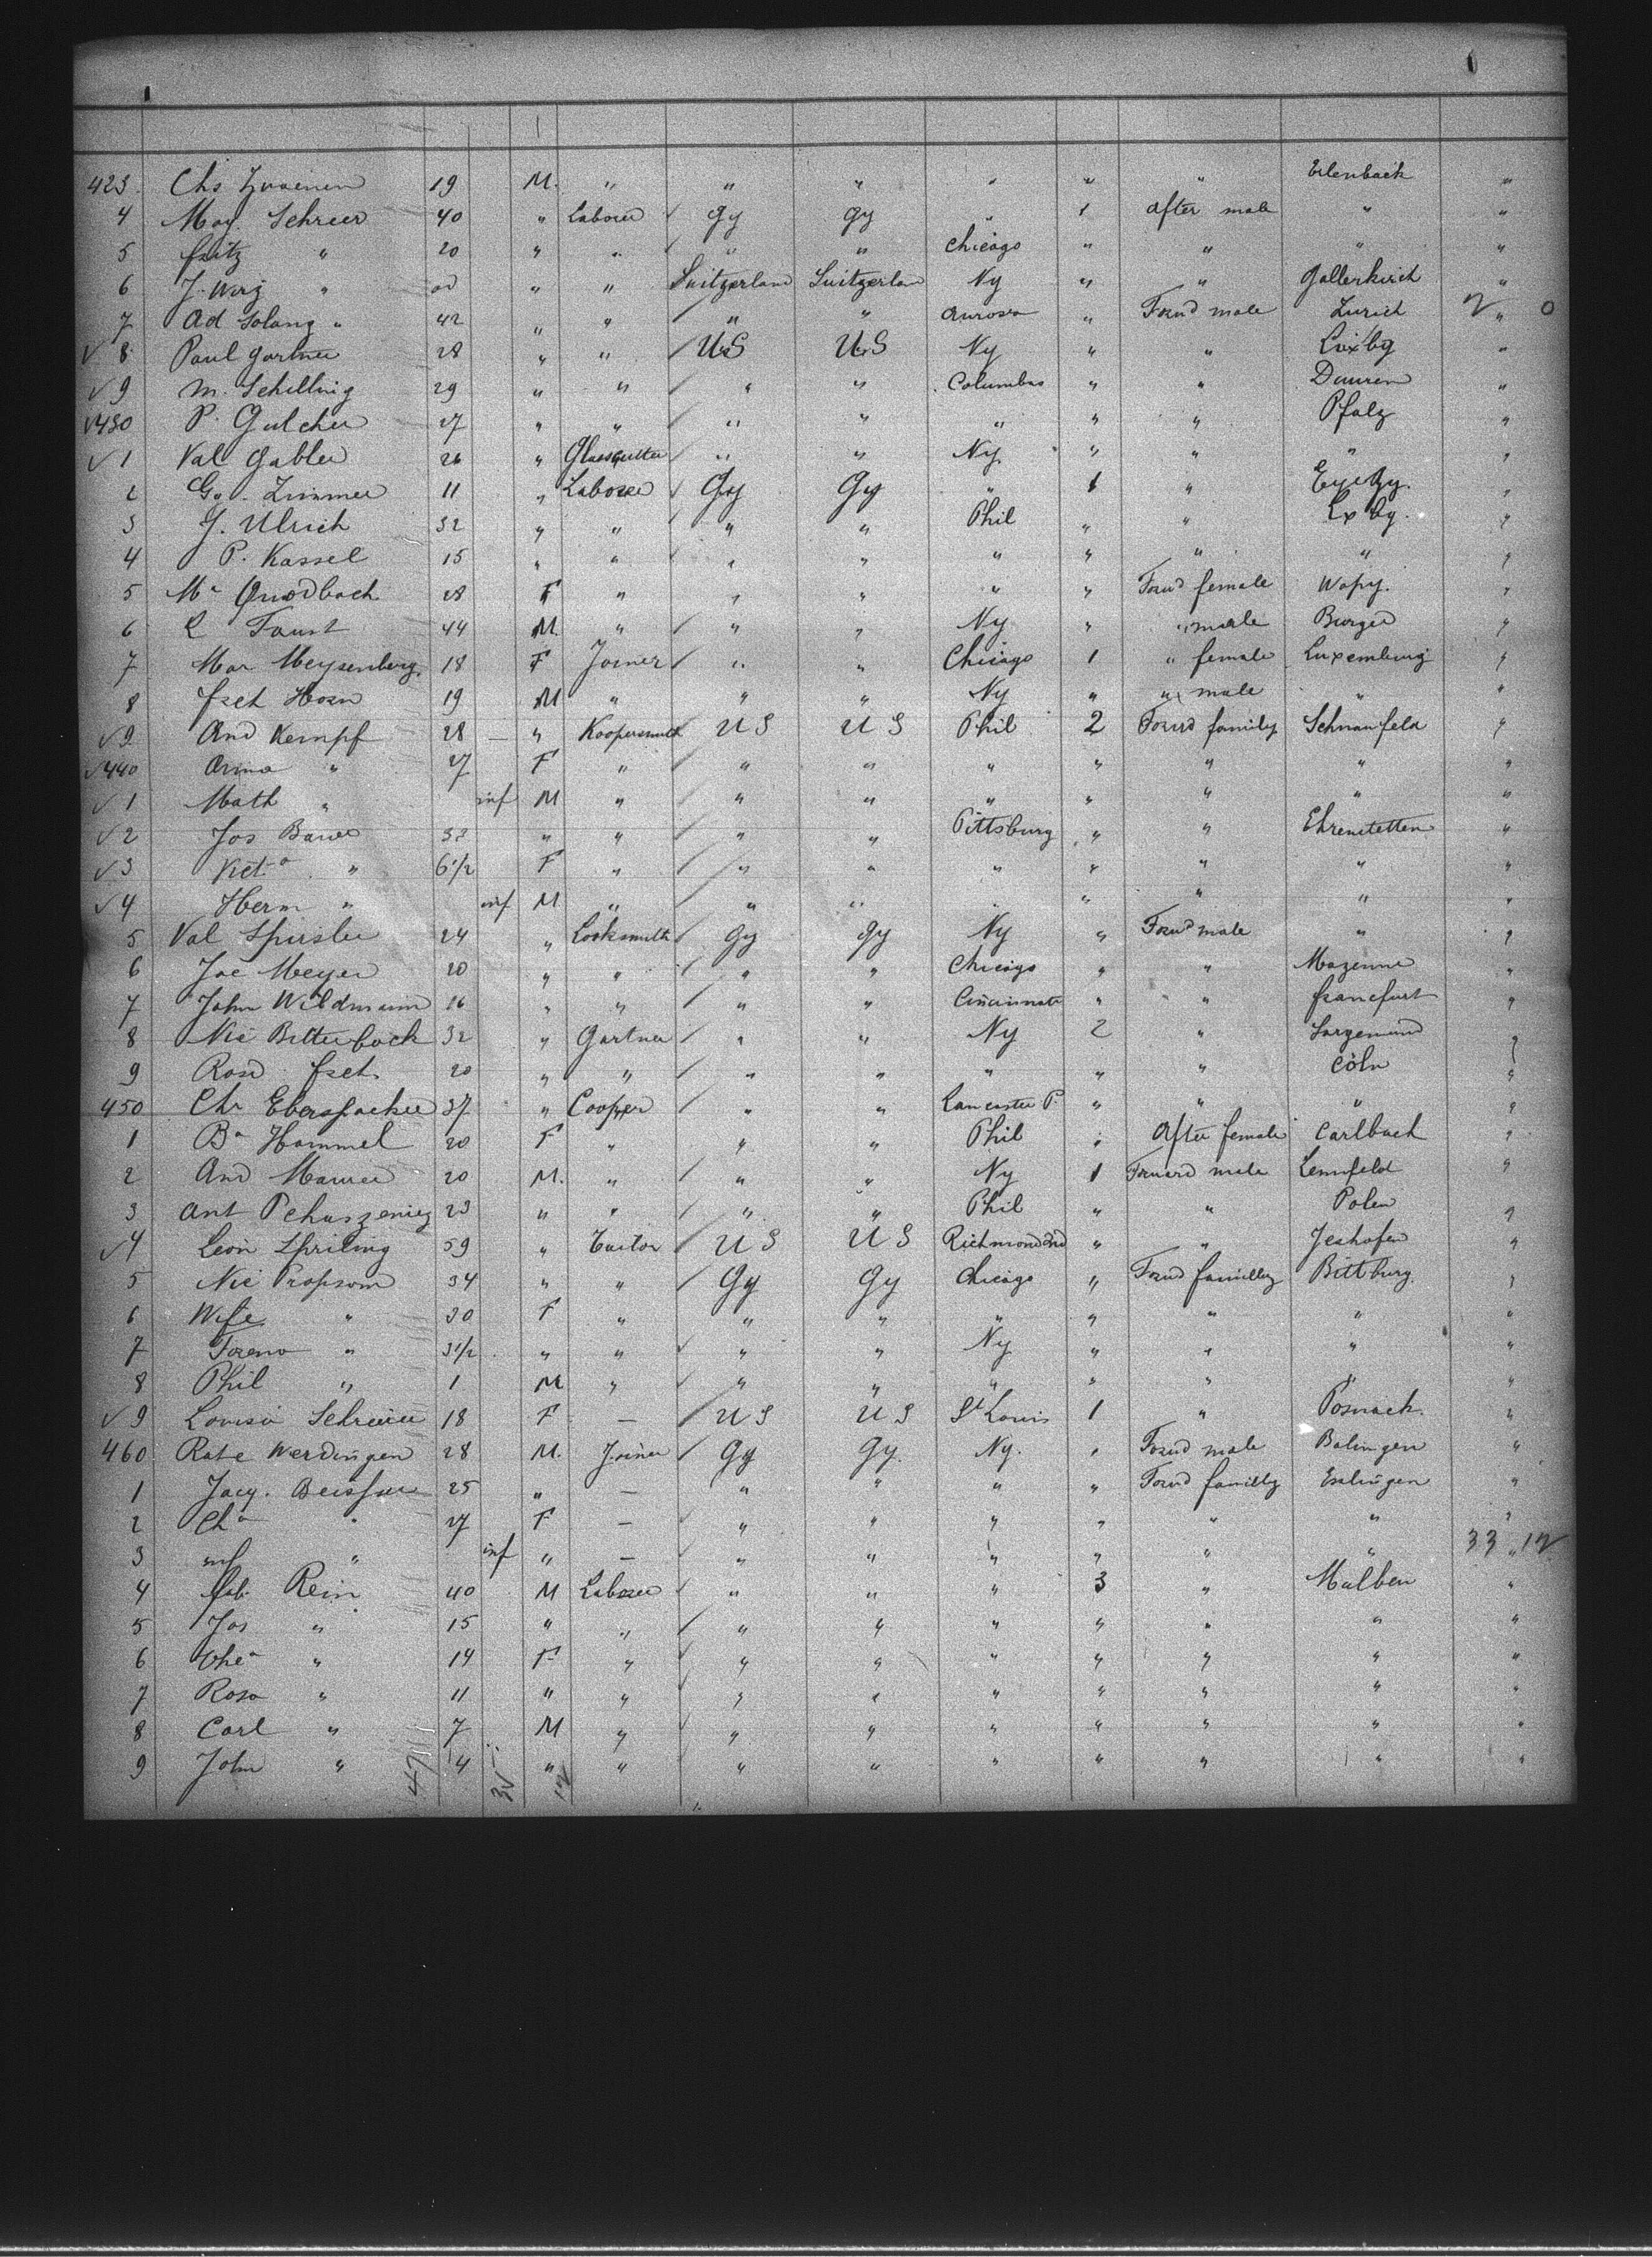 423. Chs 19 M. " " " " " " Erlenback "
4 May. Schreer 40 " Laborer Gy Gy " 1 After male " "
5 fritz " 20 " " " " Chicago " " " "
6 J. Wirz " " " Suitzerland Suitzerlan Ny " " Gallenkirch "
7 Ad Solang " 42 " " " " Aurora " Forwd male Zurich " 0
8 Paul Gartner 28 " " U.S U.S Ny " " Luxbg "
9 M. Schilling 29 " " " " Columbus " " Duuren "
430 P. Gulcher 27 " " " " " " " Pfalz "
1 Val Gabler 26 " Glasscutter " " Ny. " " " "
2 Zimmer 11 " Laborer Gy Gy " 1 " "
3 J. Ulrich 32 " " " " Phil " " Lxbg. "
4 P. Kassel 15 " " " " " " " " "
5 Ma Quodbach 28 F " " " " " Forwd female Wapy. "
6 L Faust 44 M. " " " Ny " " male Burger "
7 Mar Meysenberg 18 F Joiner " " Chicago 1 " female Luxemburg "
8 frch Horn 19 M " " " Ny " " male " "
9 And Kempf 28 — " Koopersmith U S U S Phil 2 Forwd family Schnanfeld "
440 Anna " 27 F " " " " " " " "
1 Math " inf M " " " " " " " "
2 Jos Bauer 33 " " " " Pittsburg " " Ehrenstetten "
3 " 6 1/2 F " " " " " " " "
4 Herm " inf M " " " " " " "
5 Val Spirsler 24 " Locksmith Gy Gy Ny " Forwd male " "
6 Jac Meyer 20 " " " " Chicago " " Mazenne "
7 John Wildmann 16 " " " " Cincinnati " " francfurt "
8 Nic Bitterbach 32 " Gartner " " Ny 2 " Sargemund "
9 Rosd frch 20 " " " " " " " Cöln "
450 Chr Eberspacher 37 " Cooper " " Lancaster P. " " " "
1 Ba Hammel 20 F " " " Phil " After female Carlbach "
2 And Maurer 20 M. " " " Ny 1 Forward male Lennfeld "
3 Ant 23 " " " " Phil " " Polen "
4 Leon Spriling 59 " U S U S Richmond Ind " " Jeshofen "
5 Nic Propsom 34 " " Gy Gy Chicago " Forwd familly Bittburg "
6 Wife " 30 F " " " " " " " "
7 " 3 1/2 " " " " Ny " " " "
8 Phil " 1 M " " " " " " " "
9 Lovisa Schreiner 18 F — U S U S St Louis 1 " Posnack. "
460 Rate Werdingen 28 M. Joiner Gy Gy. Ny. " Forwd male Balingen "
1 Jacq. 25 " — " " " " Forwd familly Esslingen "
2 " 27 F — " " " " " " "
3 inf " inf " — " " " " " " 33 " 12
4 Rein 40 M Laborer " " " 3 " Malben "
5 Jos " 15 " " " " " " " " "
6 " 14 F " " " " " " " "
7 Rosa " 11 " " " " " " " " "
8 Carl " 7 M " " " " " " " "
9 John " 4 " " " " " " " " "